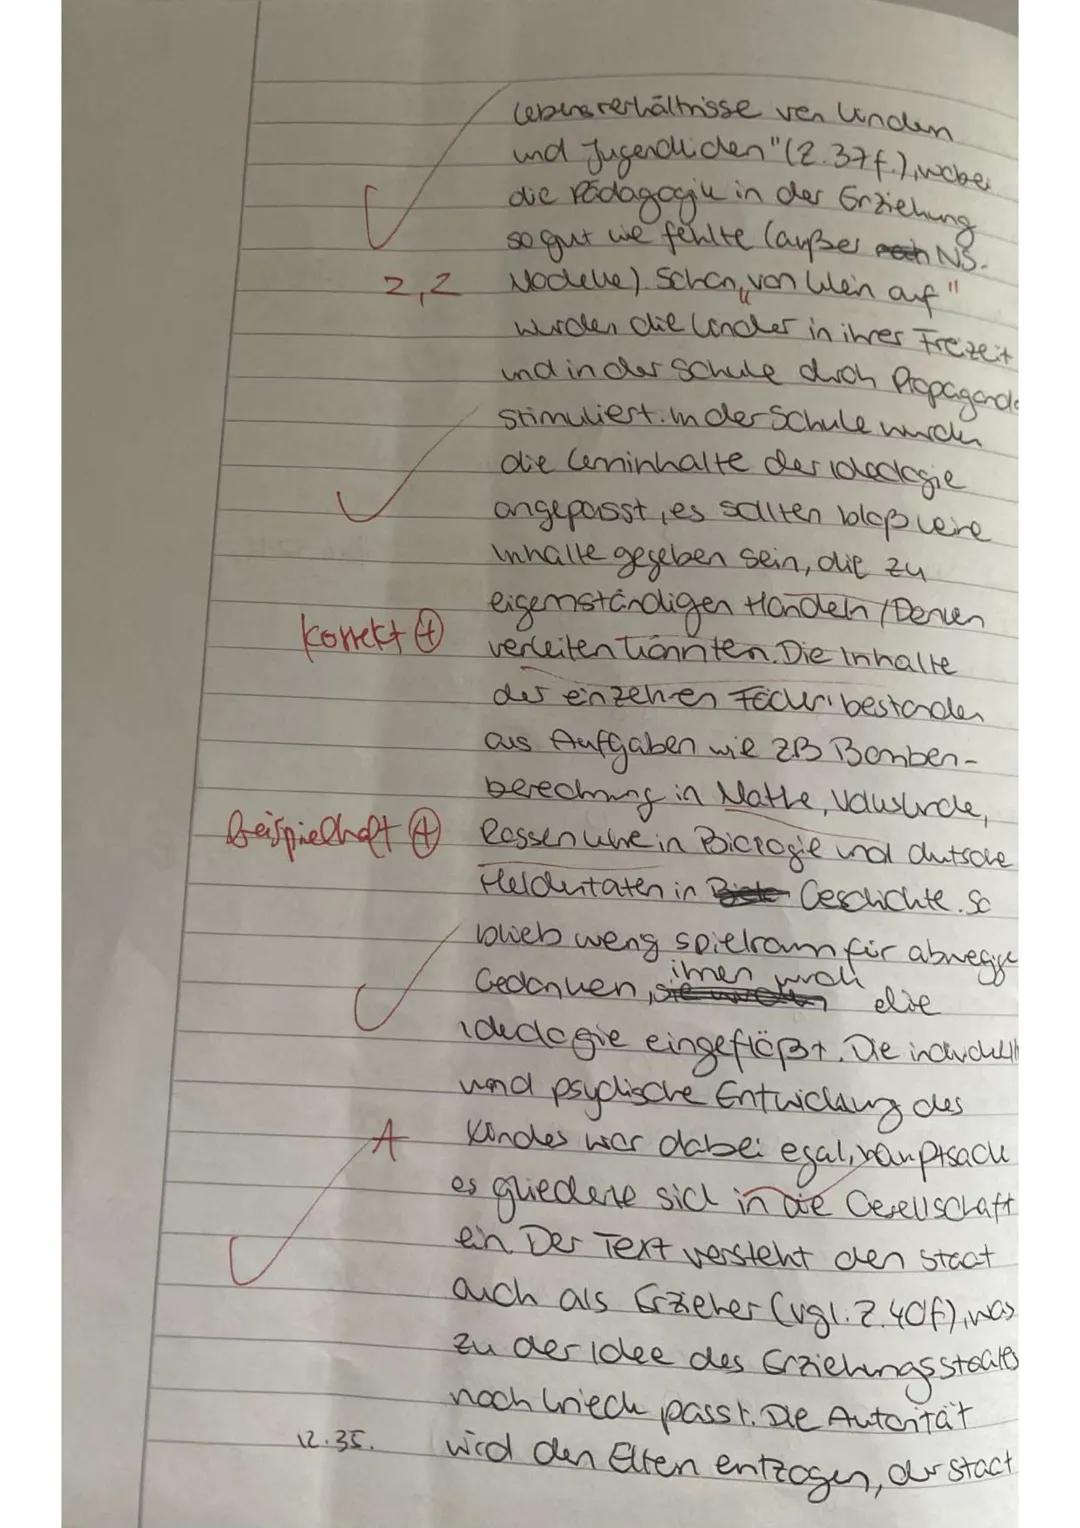 Lebensverhältnisse von Kindern
und Jugendlichen" (Z.37f.), wobei
die Pädagogik in der Erziehung
so gut wie fehlte (außer NS-
2,Z Modelle). Schon "von klein auf"
wurden die Kinder in ihrer Freizeit
und in der Schule durch Propaganda
stimuliert. In der Schule wurden
die Lerninhalte der Ideologie
angepasst, es sollten bloß keine
Inhalte gegeben sein, die zu
eigenständigen Handeln / Denken
korrekt (+) verleiten könnten. Die Inhalte
der einzelnen Fächer bestanden
aus Aufgaben wie zB Bomben-
berechnung in Mathe, Volkskunde,
beispielhaft (+) Rassenlehre in Biologie und deutsche
Heldentaten in Geschichte. So
blieb wenig Spielraum für abwegige
Gedanken, ihnen wurde die
Ideologie eingeflößt. Die individuelle
und psychische Entwicklung des
A Kindes war dabei egal, hauptsache
es gliederte sich in die Gesellschaft
ein. Der Text versteht den Staat
auch als Erzieher (vgl. Z.40f), was
zu der Idee des Erziehungsstaates
nach Krieck passt. Die Autorität
12.35. wird den Eltern entzogen, der Staat